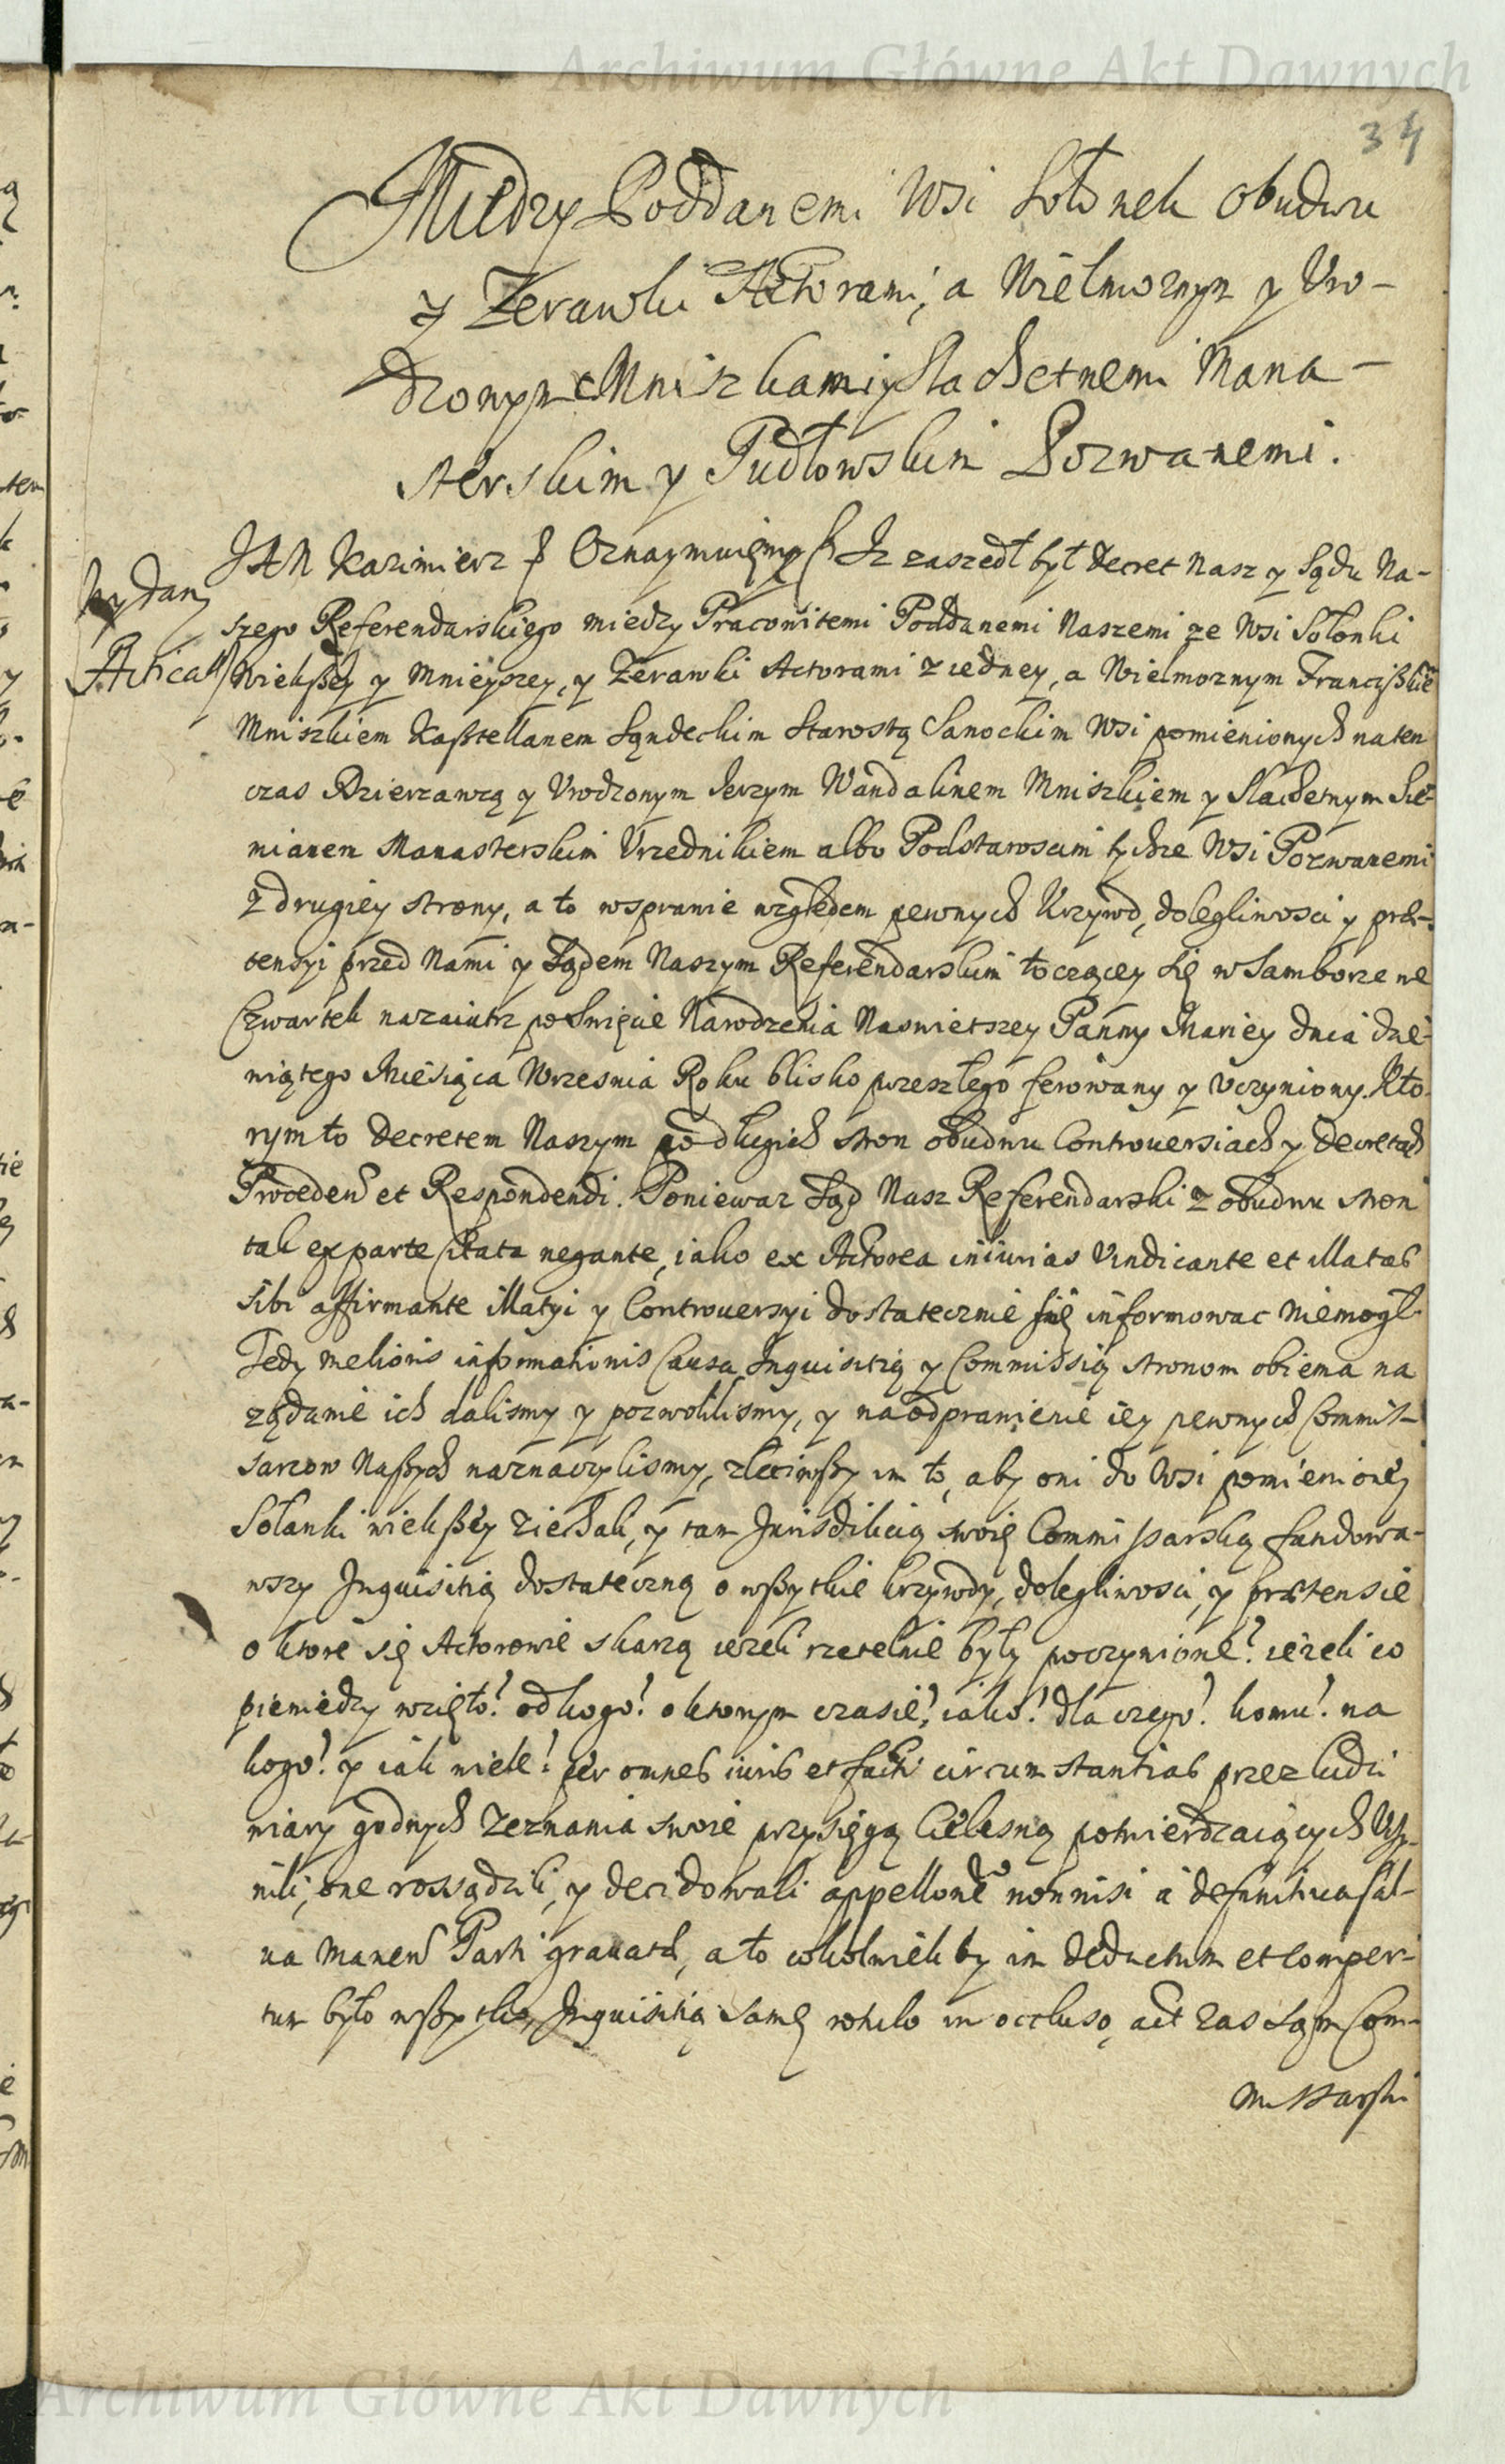 Archiwum Główne Akt Dawnych
34
Między Poddanemi Wsi Sołonek obudwu
y Zerawki Actorami, a Wielmoznym y Vro-
dzonym Mniszkami y Slachetnemi Mana-
sterskim y Pudłowskim Pozwanemi.
JAN Kazimierz Oznaymuięmy Iz zaszedł był Decret Nasz y Sądu Na-
szego Referendarskiego miedzy Pracowitemi Poddanemi Naszemi ze Wsi Sołonki
Wielkßey y Mnieyszey, y Zerawki Actorami z iedney, a Wielmoznym Franciszkiē
Mniszkiem Kaßtellanem Sąndeckim Starostą Sanockim Wsi pomienionych na ten
czas Dzierzawzą y Vrodzonym Jerzym Wandalinem Mniszkiem y Slachetnym Sie-
mianem Manasterskim Vrzednikiem albo Podstaroscim tychze Wsi Pozwanemi
z drugiey strony, a to wsprawie względem pewnych Krzywd, dolegliwosci y præ-
tensyi przed Nami y Sądem Naszym Referendarskim toczącey się w Samborze we
Czwartek nazaiutrz po Swięcie Narodzenia Naswietszey Panny Mariey dnia dzie-
wiątego Miesiąca Wrzesnia Roku blisko przeszłego ferowany y vczyniony. Kto-
rym to Decretem Naszym po długich stron obudwu Controuersiach y Decretach
Procedendi et Respondendi. Poniewaz Sąd Nasz Referendarski z obudwu stron
tak ex parte Citata negante, iako ex Actorea iniurias Vindicante et illatas
sibi affirmante illatyi y Controuersyi dostatecznie się informowac niemogł.
Tedy melioris informationis Causa Inquisitią y Commissią stronom obiema na
ządanie ich dalismy y pozwolilismy, y na odprawienie iey pewnych Commis-
sarzow Naßych naznaczylismy, zleciwßy im to, aby oni do Wsi pomienioney
Sołanki wielkßey ziechali, y tam Jurisdikcią swoię Commissarską fundowa-
wszy Inquisitią dostateczną o wßytkie krzywdy, dolegliwosci, y prætensie
o ktore się Actorowie skarzą iezeli rzetelnie były poczynione? iezeli co
pieniedzy wzięto? od kogo? o ktorym czasie? iako? dla czego? komu? na
kogo? y iak wiele? per omnes iuris et facti circumstantias przez ludzi
wiary godnych zeznania swoie przysięgą Cielesną potwierdzaiących Vczy-
nili, one rossądzili, y decidowali appellone nonnisi a definitiua sal-
ua manend Parti grauatæ, a to cokolwiek by im deductum et comper-
tum było wßytko, Inquisitią samę rotulo in occluso, act zas sąm Com-
missarski
Wydany
Actica
Archiwum Główne Akt Dawnych